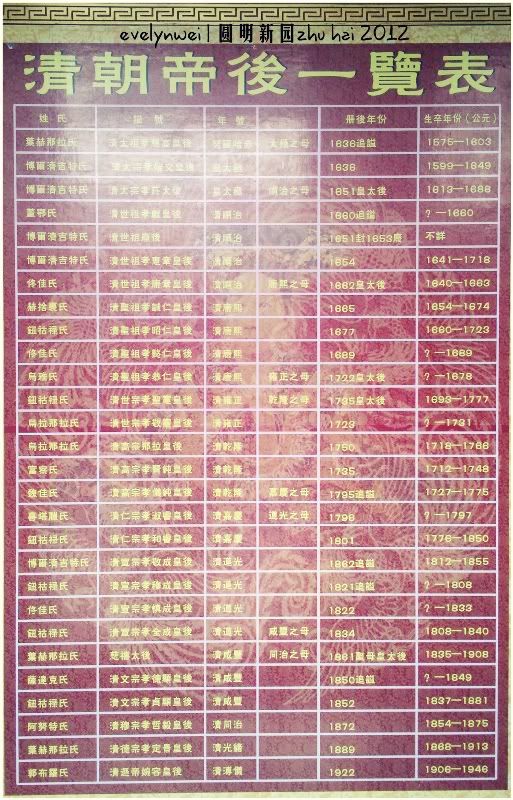 evelynwei | 圓明新园zhu hai 2012
清朝帝後一覽表
姓氏 年號 册後年份 生卒年份（公元）
葉赫那拉氏 清太祖孝慈高皇後 太極之母 1636追謚 1575—1603
博爾濟吉特氏 皇太極 1636 1599—1649
博爾濟吉特氏 皇太極 順治之母 1651皇太後 1613—1688
董鄂氏 清世祖孝獻皇後 清順治 1660追謚 ？—1660
博爾濟吉特氏 清世祖廢後 清順治 1651封1653廢 不詳
博爾濟吉特氏 清世祖孝惠章皇後 清順治 1654 1641—1718
佟佳氏 清世祖孝康章皇後 清順治 康熙之母 1662皇太後 1640—1663
赫捨裏氏 清聖祖孝誠仁皇後 清康熙 1665 1654—1674
鈕祜祿氏 清聖祖孝昭仁皇後 清康熙 1677 1660—1723
佟佳氏 清聖祖孝懿仁皇後 清康熙 1689 ？—1689
烏雅氏 清聖祖孝恭仁皇後 清康熙 雍正之母 1722皇太後 ？—1678
鈕祜祿氏 清世宗孝聖憲皇後 清雍正 乾隆之母 1735皇太後 1693—1777
烏拉那拉氏 清世宗孝敬憲皇後 清雍正 1723 ？—1731
烏拉那拉氏 清高宗那拉皇後 清乾隆 1750 1718—1766
富察氏 清高宗孝賢純皇後 清乾隆 1735 1712—1748
魏佳氏 清高宗孝儀純皇後 清乾隆 嘉慶之母 1795追謚 1727—1775
喜塔臘氏 清仁宗孝淑睿皇後 清嘉慶 道光之母 1796 ？—1797
鈕祜祿氏 清仁宗孝和睿皇後 清嘉慶 1801 1776—1850
博爾濟吉特氏 清宣宗孝静成皇後 清道光 1862追謚 1812—1855
鈕祜祿氏 清宣宗孝穆成皇後 清道光 1821追謚 ？—1808
佟佳氏 清宣宗孝慎成皇後 清道光 1822 ？—1833
鈕祜祿氏 清宣宗孝全成皇後 清道光 咸豐之母 1834 1808—1840
葉赫那拉氏 慈禧太後 清咸豐 同治之母 1861聖母皇太後 1835—1908
薩達克氏 清文宗孝德顯皇後 清咸豐 1850追謚 ？—1849
鈕祜祿氏 清文宗孝貞顯皇後 清咸豐 1852 1837—1881
阿努特氏 清穆宗孝哲毅皇後 清同治 1872 1854—1875
葉赫那拉氏 清德宗孝定景皇後 清光緒 1889 1868—1913
郭布羅氏 清遜帝婉容皇後 清溥儀 1922 1906—1946